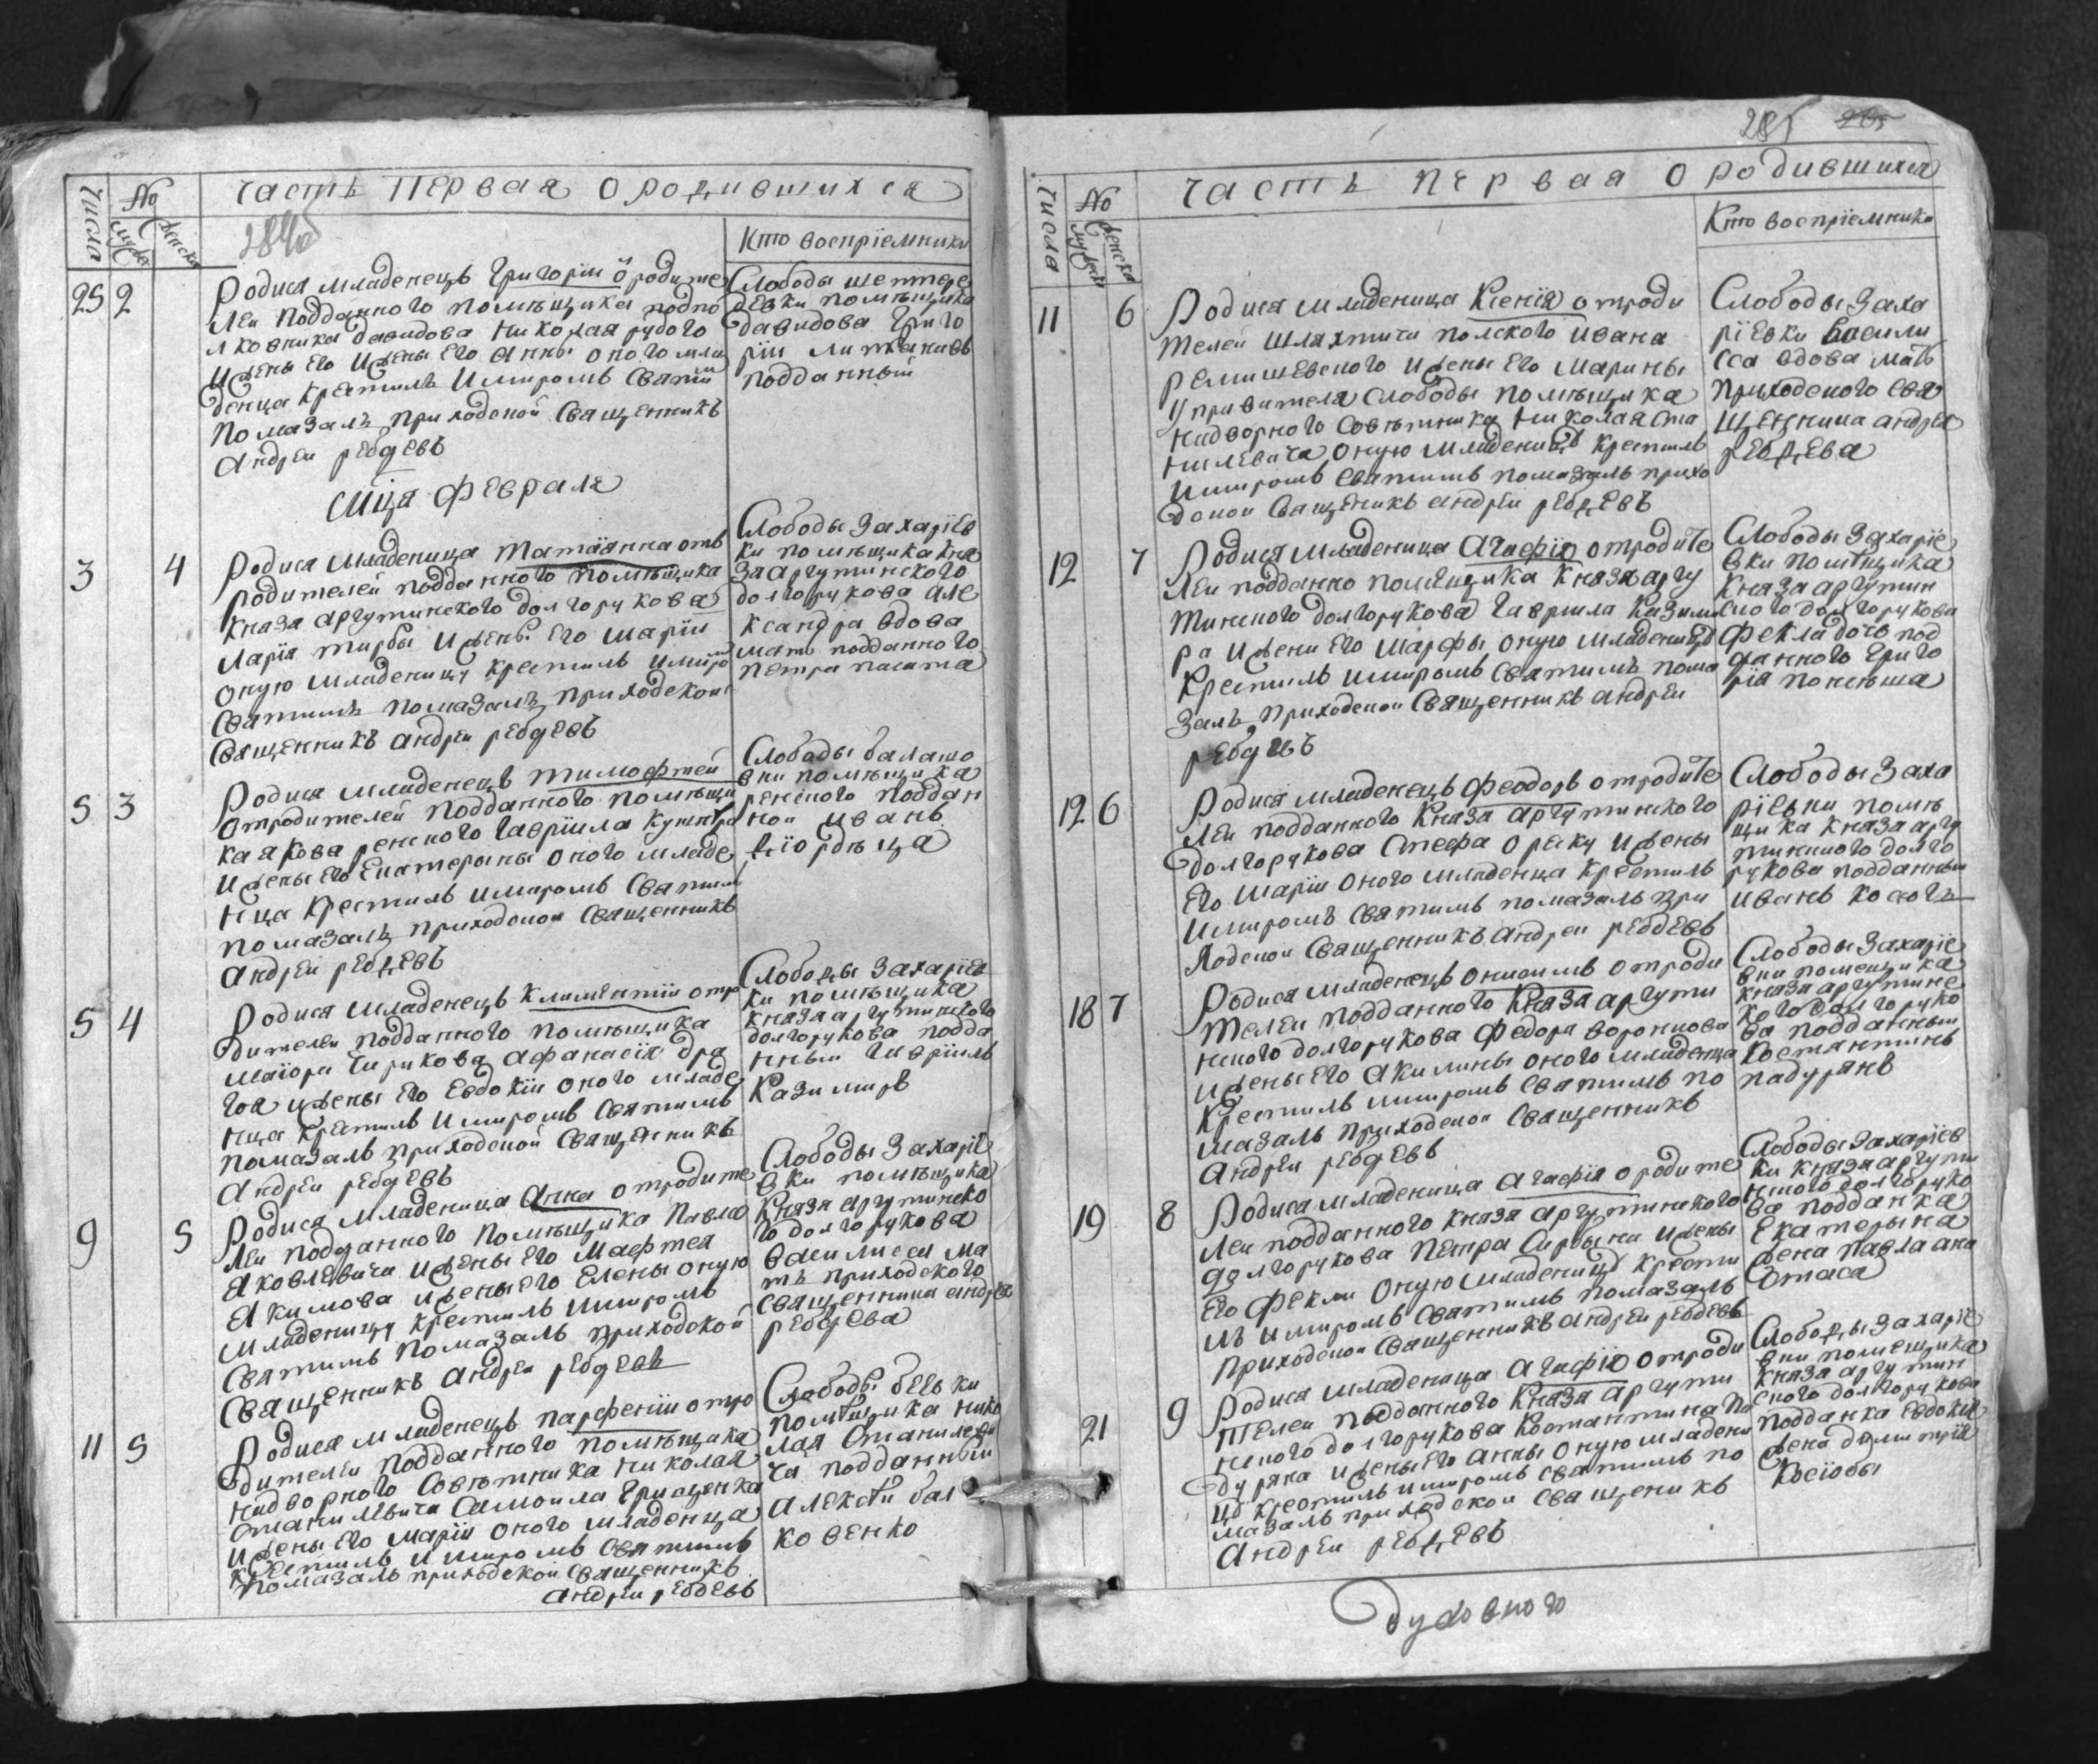 Часть Первая О родившихся
Числа
No
мужеска
женска
284об
Кто воспріемники
25 2
Родися младенецъ Григоріи ѿ родите
леи подданного помѣщика подпо
лковника давидова николая рудого
и жены его анны оного мла
денца крестилъ и миромъ святим
помазалъ приходской священникъ
андреи редѣевъ
Слободы шептере
девки помѣщика
давидова Григо
рїи литвановъ
подданный
Мца Февраля
3 4
Родися младеница татїянна отъ
родителей подданного помѣщика
Князя аргутинского долгорукова
Ларїя тирбы и жены его марїи
оную младеницу крестилъ и миро
святимъ помазалъ приходской
священникъ андреи редѣевъ
Слободы захарїев
ки помѣщика кня
зя аргутинского
долгорукова але
ксандра вдова
мать подданного
петра пасата
5 3
Родися младенецъ тимофтей
отродителей подданного помѣщи
ка якова ренского гаврїила
и жены его екатерины оного младе
нца крестилъ и миромъ святим
помазалъ приходской священникъ
андреи редѣевъ
Слободы балашо
вки помѣщика
ренского поддан
ной иванъ
5 4
Родися младенецъ климентїи отро
дителеи подданного помѣщика
маїора Чирикова афанасїя дра
гоя и жены его евдокїи оного младе
нца крестилъ и миромъ святимъ
помазалъ приходской священникъ
андреи редѣевъ
Слободы захарїев
ки помѣщика
князя аргутинского
долгорукова подда
нныи гаврїилъ
казимиръ
9 5
Родися младеница анна отродите
леи подданного помѣщика павла
яковлевича и жены его мафтея
якимова и жены его елены оную
младеницу крестилъ и миромъ
святимъ помазалъ приходской
священникъ андреи редѣевъ
Слободы захарїе
вки помѣщика
князя аргутинско
го долгорукова
василисси ма
ть приходского
священника андрея
редѣева
11 5
Родися младенецъ парфенїи отро
дителеи подданного помѣщика
надворного совѣтника николая
станилевича самоила грищенка
и жены его марїи оного младенца
крестилъ и миромъ святимъ
помазалъ приходской священникъ
андреи редѣевъ
Слободы беевки
помѣщика нико
лая станилеви
ча подданный
алексѣй бал
ковенко
285
Часть первая О родившихся
Числа
No
мужеска
женска
Кто воспрїемники
11 6
Родися младеница Ксенїя отроди
телеи шляхтича полского ивана
ремишевского и жены его марины
управителя слободы помѣщика
надворного совѣтника николая ста
нилевича оную младеницу крестилъ
и миромъ святимъ помазалъ прихо
дской священикъ андреи редѣевъ
Слободы заха
рїевки васили
сса вдова мать
приходского свя
щенника андрея
редѣева
12 7
Родися младеница Агафїя отродите
леи подданно помѣщика князя аргу
тинского долгорукова гаврила казими
ра и жени его марфы оную младеницу
крестилъ и миромъ святимъ пома
залъ приходской священникъ андреи
редѣевъ
Слободы захарїе
вки помѣщика
князя аргутин
ского долгорукова
фекла дочь под
данного григо
рїя
12 6
Родися младенецъ феодоръ отродите
леи подданного князя аргутинского
долгорукова стефа ореску и жены
его марїи оного младенца крестилъ
и миромъ святимъ помазалъ при
ходской священникъ андреи редѣевъ
Слободы заха
рїевки помѣ
щика князя аргу
тинского долго
рукова подданныи
иванъ
18 7
Родися младенецъ онисимъ отроди
телеи подданного князя аргути
нского долгорукова федора воронцова
и жены его акилины оного младенца
крестилъ и миромъ святимъ по
мазалъ приходской священникъ
андреи редѣевъ
Слободы захарїе
вки помещика
князя аргутинс
кого долгоруко
ва подданныи
костянтинъ
падурянъ
19 8
Родися младеница Агафїя ородите
леи подданного князя аргутинского
долгорукова петра сирбына и жены
его феклы оную младеницу крести
лъ и миромъ святимъ помазалъ
приходской священникъ андреи редѣевъ
Слободы захарїев
ки князя аргути
нского долгоруко
ва подданка
екатерына
жена павла ана
стаса
21 9
Родися младеница Агафїя отроди
телеи подданного князя аргути
нского долгорукова костантина па
дуряна и жены его анны оную младени
цу крестилъ и миромъ святимъ по
мазалъ приходской священикъ
андреи редѣевъ
Слободы захарїе
вки помещика
князя аргутин
ского долгорукова
подданка евдокия
жена димитрїя
Духовного